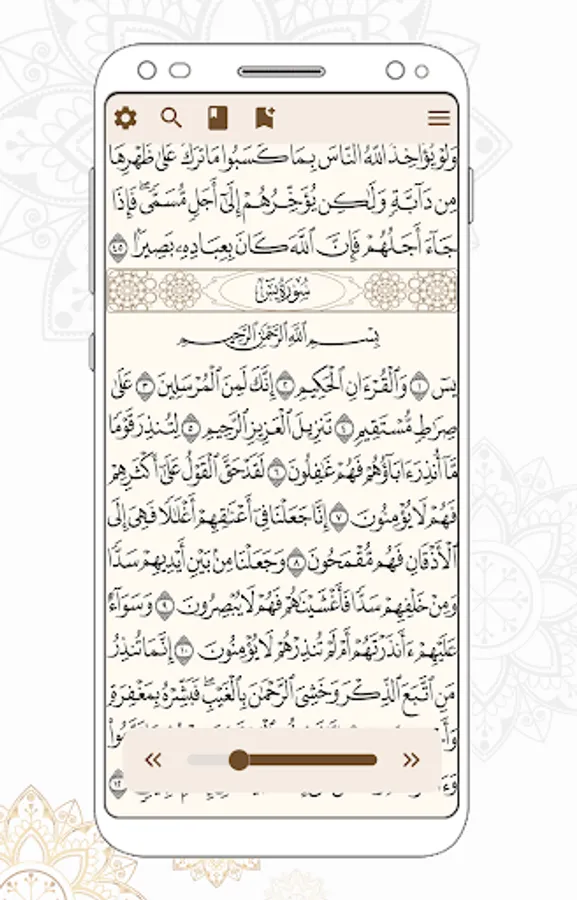 وَلَوْ يُؤَاخِذُ ٱللَّهُ ٱلنَّاسَ بِمَا كَسَبُوا۟ مَا تَرَكَ عَلَىٰ ظَهْرِهَا
مِن دَآبَّةٍ وَلَٰكِن يُؤَخِّرُهُمْ إِلَىٰٓ أَجَلٍ مُّسَمًّى ۖ فَإِذَا
جَآءَ أَجَلُهُمْ فَإِنَّ ٱللَّهَ كَانَ بِعِبَادِهِۦ بَصِيرًۢا ٤٥
سُورَةُ يسٓ
بِسْمِ ٱللَّهِ ٱلرَّحْمَٰنِ ٱلرَّحِيمِ
يسٓ ١ وَٱلْقُرْءَانِ ٱلْحَكِيمِ ٢ إِنَّكَ لَمِنَ ٱلْمُرْسَلِينَ ٣ عَلَىٰ
صِرَٰطٍ مُّسْتَقِيمٍ ٤ تَنزِيلَ ٱلْعَزِيزِ ٱلرَّحِيمِ ٥ لِتُنذِرَ قَوْمًا
مَّآ أُنذِرَ ءَابَآؤُهُمْ فَهُمْ غَٰفِلُونَ ٦ لَقَدْ حَقَّ ٱلْقَوْلُ عَلَىٰٓ أَكْثَرِهِمْ
فَهُمْ لَا يُؤْمِنُونَ ٧ إِنَّا جَعَلْنَا فِىٓ أَعْنَٰقِهِمْ أَغْلَٰلًا فَهِىَ إِلَى
ٱلْأَذْقَانِ فَهُم مُّقْمَحُونَ ٨ وَجَعَلْنَا مِنۢ بَيْنِ أَيْدِيهِمْ سَدًّا
وَمِنْ خَلْفِهِمْ سَدًّا فَأَغْشَيْنَٰهُمْ فَهُمْ لَا يُبْصِرُونَ ٩ وَسَوَآءٌ
عَلَيْهِمْ ءَأَنذَرْتَهُمْ أَمْ لَمْ تُنذِرْهُمْ لَا يُؤْمِنُونَ ١٠ إِنَّمَا تُنذِرُ
مَنِ ٱتَّبَعَ ٱلذِّكْرَ وَخَشِىَ ٱلرَّحْمَٰنَ بِٱلْغَيْبِ ۖ فَبَشِّرْهُ بِمَغْفِرَةٍ
١٢